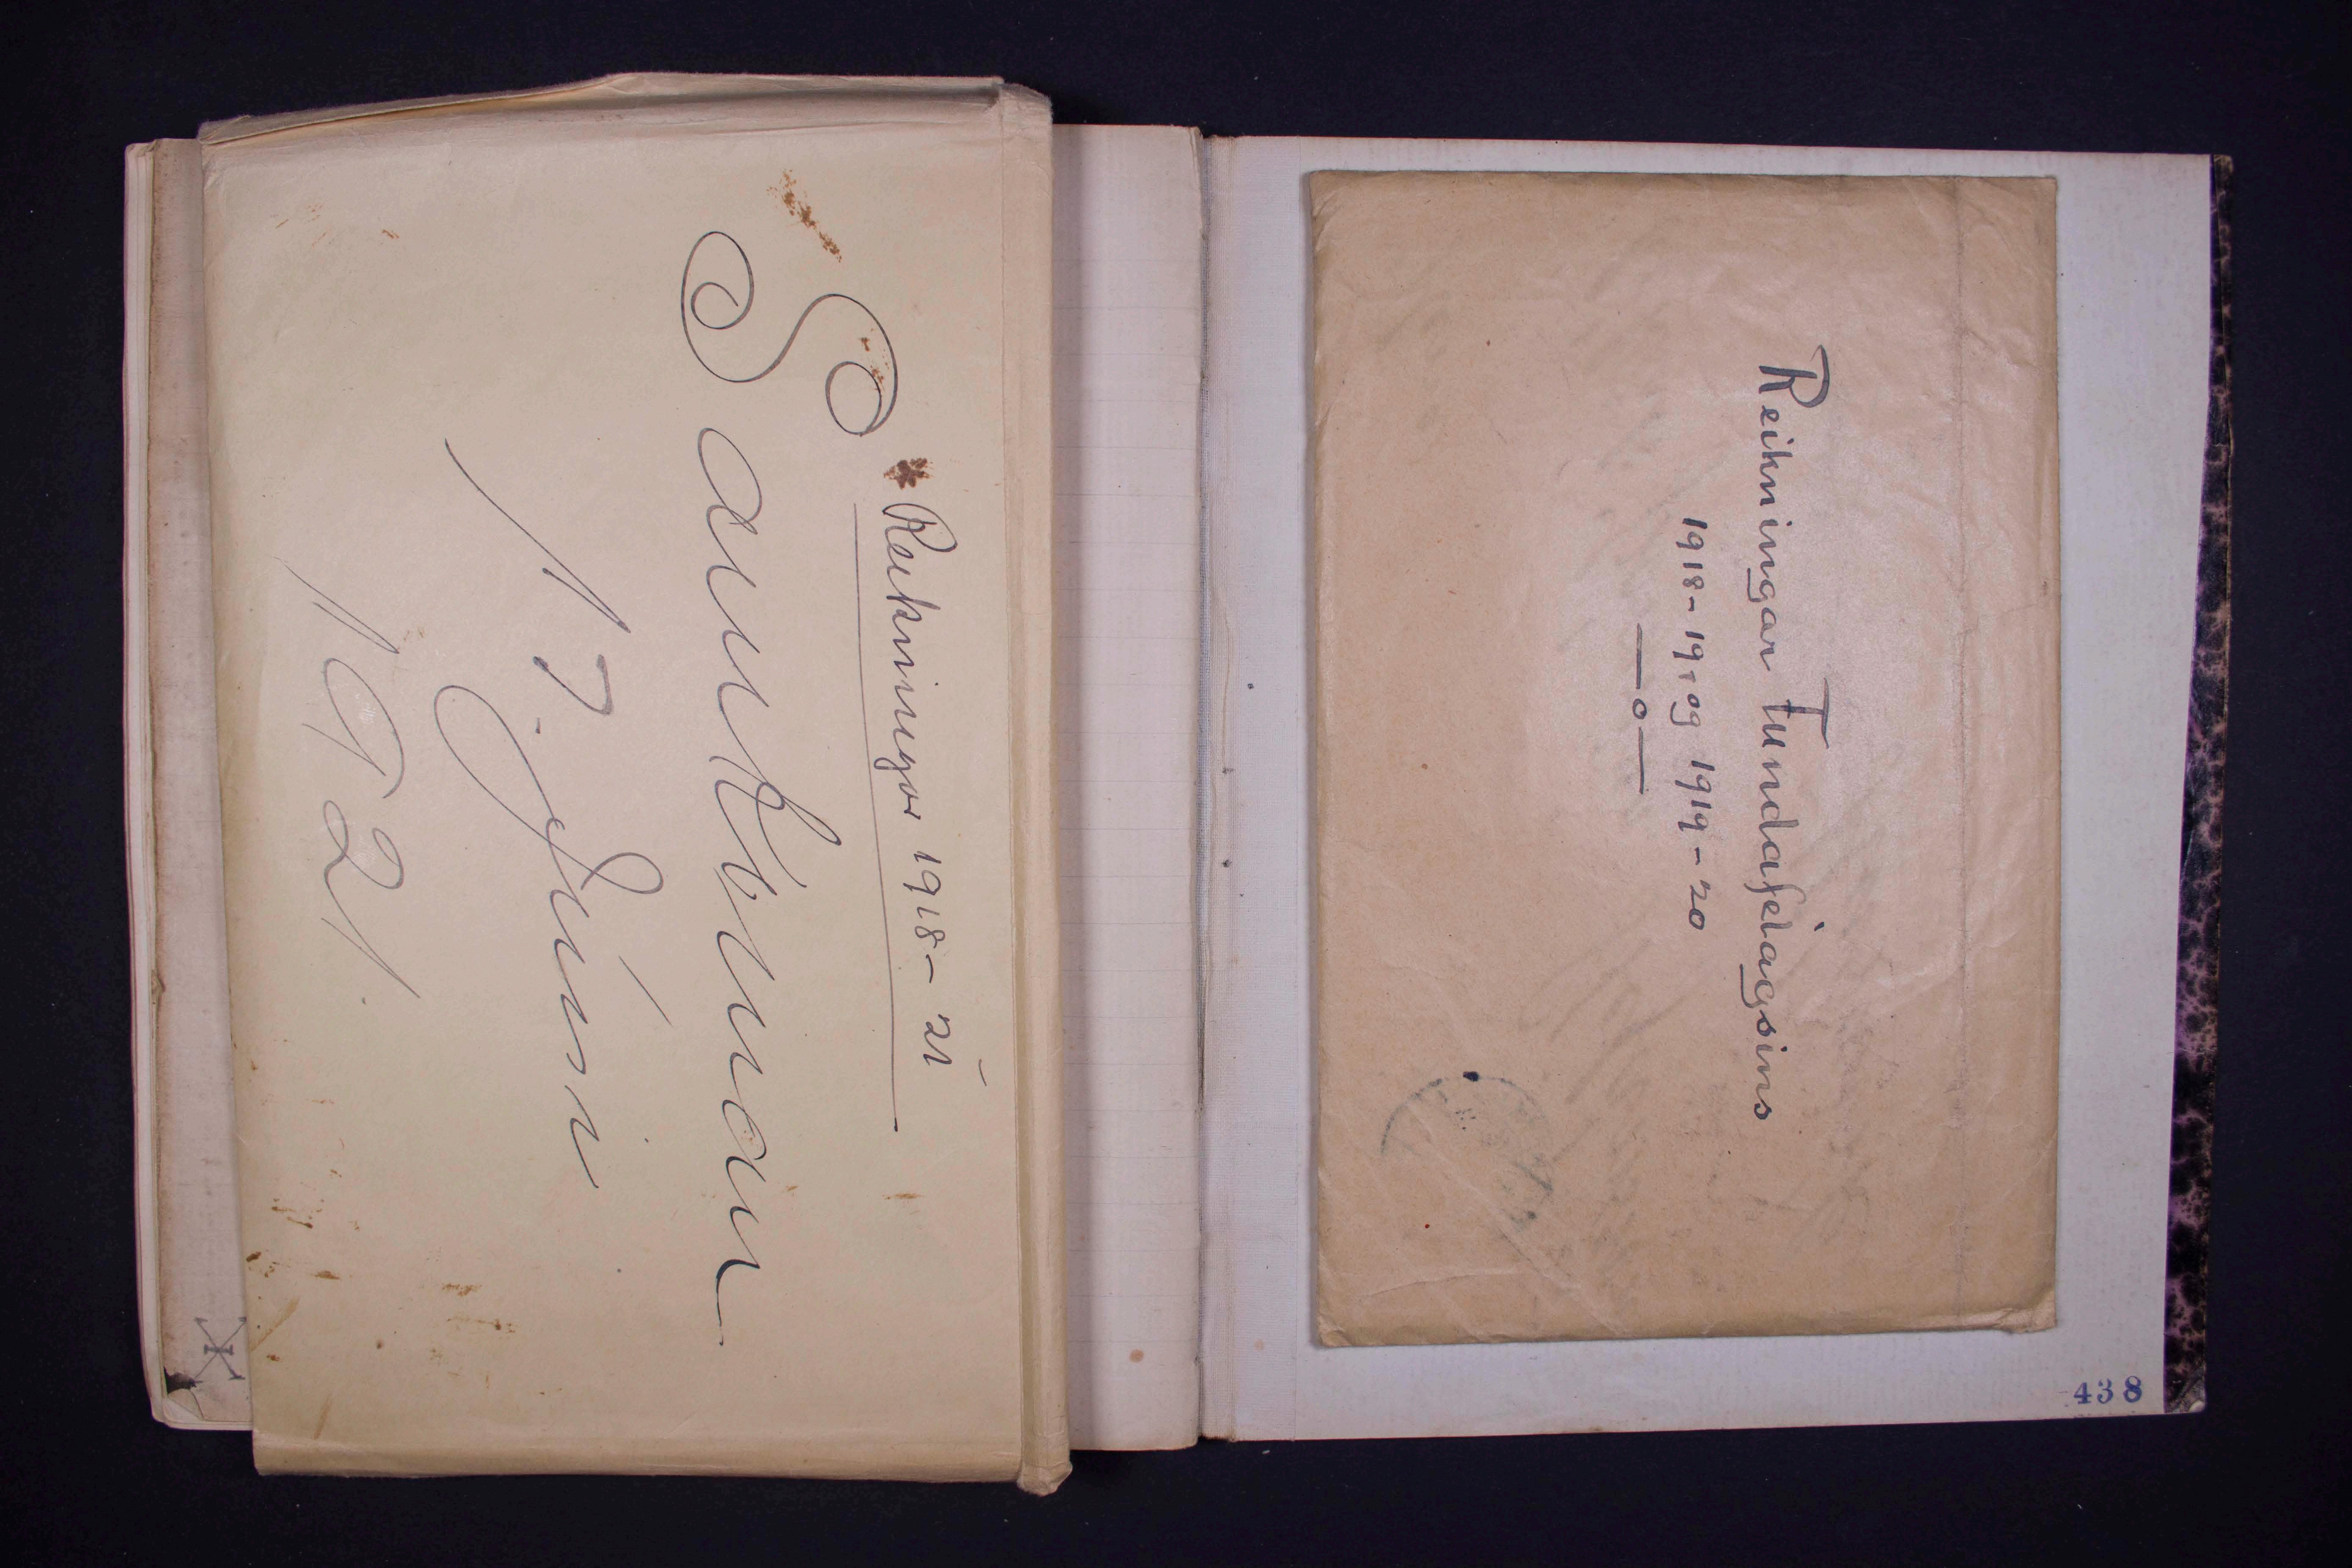 Reikningar 1918-21
Samkoman
17. Júní
1921.
Reikningar Fundafélagsins
1918-19, og 1919-20
—o—
438